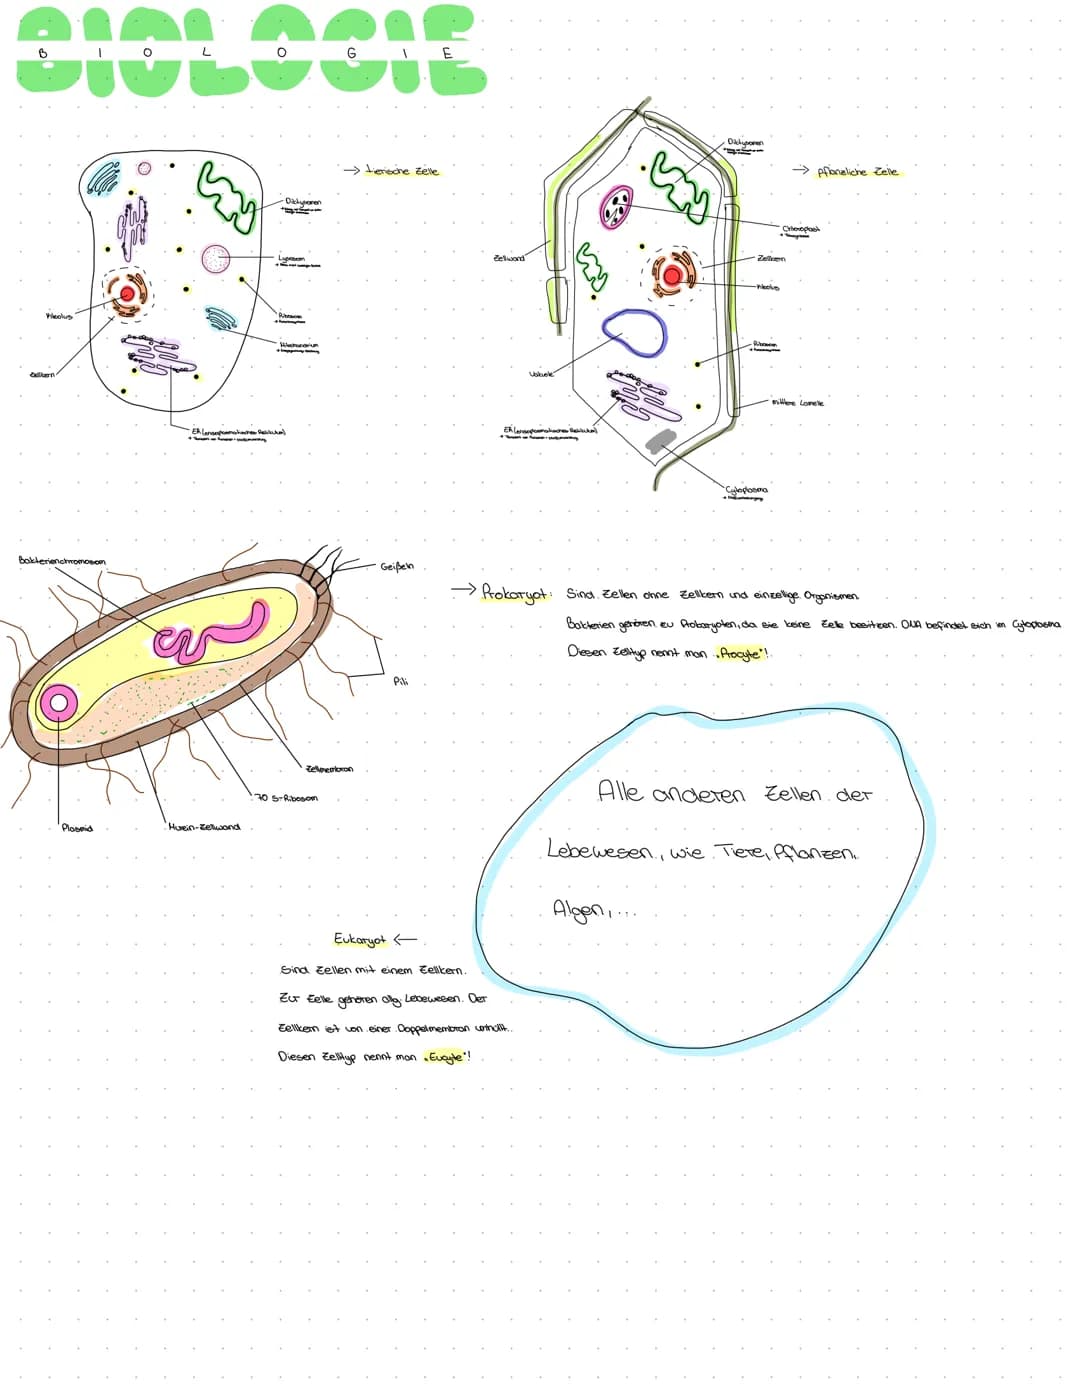 BIOLOGIE
B I O L O G I E
→ tierische Zelle
Dictyosomen
Lysosom
Ribosom
Mitochondrium
Nucleolus
Zellkern
ER (endoplasmatisches Retikulum)
→ pflanzliche Zelle
Dictyosomen
Chloroplast
Zellwand
Zellkern
Nucleolus
Ribosom
Vakuole
mittlere Lamelle
ER (endoplasmatisches Retikulum)
Cytoplasma
Bakterienchromosom
Geißeln
Pili
Zellmembran
70 S-Ribosom
Murein-Zellwand
Plasmid
→ Prokaryot: Sind Zellen ohne Zellkern und einzellige Organismen.
Bakterien gehören zu Prokaryoten, da sie keine Zelle besitzen. DNA befindet sich im Cytoplasma
Diesen Zelltyp nennt man „Procyte"!
Alle anderen Zellen der
Lebewesen, wie Tiere, Pflanzen,
Algen,...
Eukaryot ←
Sind Zellen mit einem Zellkern.
Zur Zelle gehören allg. Lebewesen. Der
Zellkern ist von einer Doppelmembran umhüllt.
Diesen Zelltyp nennt man „Eucyte"!